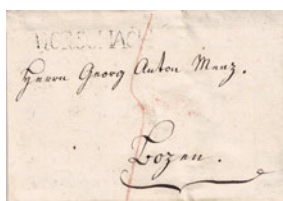 RORSCHACH
Herrn Georg Anton Menz.
Bozen.